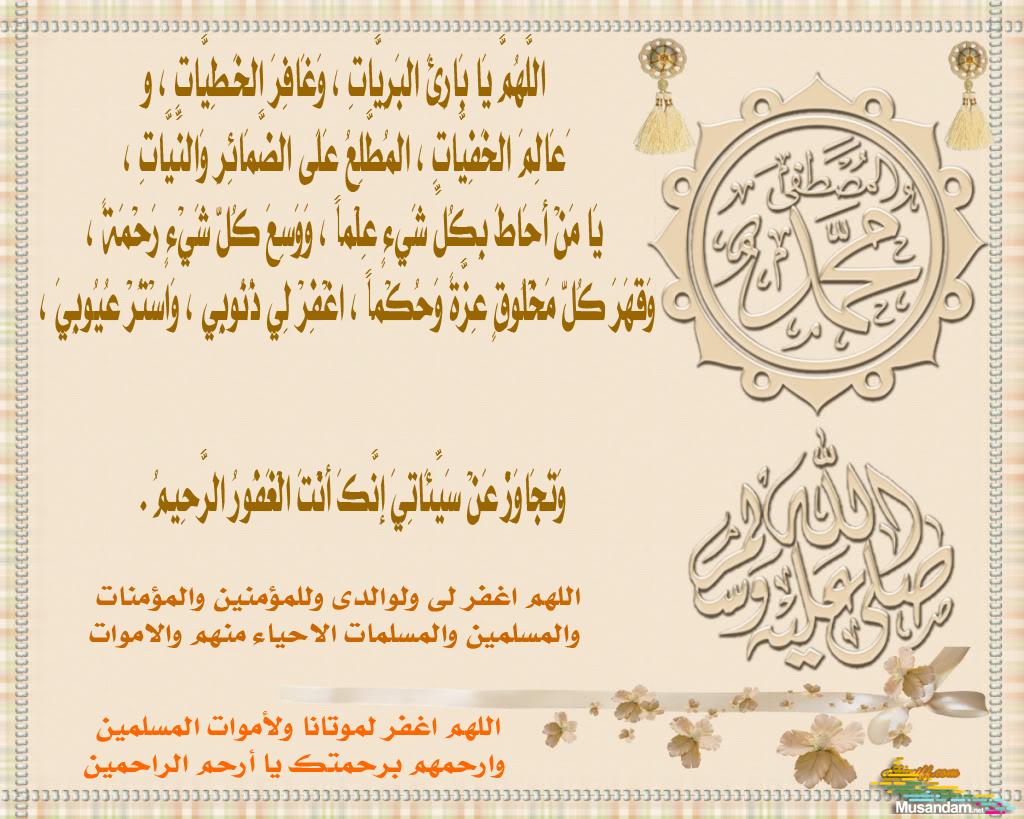 اللَّهُمَّ يَا بَارِئَ البَرِيَّاتِ ، وَغَافِرَ الخَطِيَّاتِ ، و
َعَالِمَ الخَفِيَّاتِ ، المُطَّلِعُ عَلَى الضَّمَائِرِ وَالنِّيَّاتِ ،
يَا مَنْ أحَاطَ بِكُلِّ شَيءٍ عِلْماً ، وَوَسِعَ كُلَّ شَيْءٍ رَحْمَةً ،
وَقَهَرَ كُلَّ مَخْلُوقٍ عِزَّةً وَحُكْماً ، اغْفِرْ لِي ذُنُوبِي ، وَاسْتُرْ عُيُوبِيَ ،
وَتَجَاوَزْ عَنْ سَيِّئَاتِيَ إنَّكَ أنْتَ الْغَفُورُ الرَّحِيمُ .
اللهم اغفر لى ولوالدى وللمؤمنين والمؤمنات
والمسلمين والمسلمات الاحياء منهم والاموات
اللهم اغفر لموتانا ولأموات المسلمين
وارحمهم برحمتك يا أرحم الراحمين
المُصْطَفى
محمد
صلى الله عليه وسلم
Musandam.net